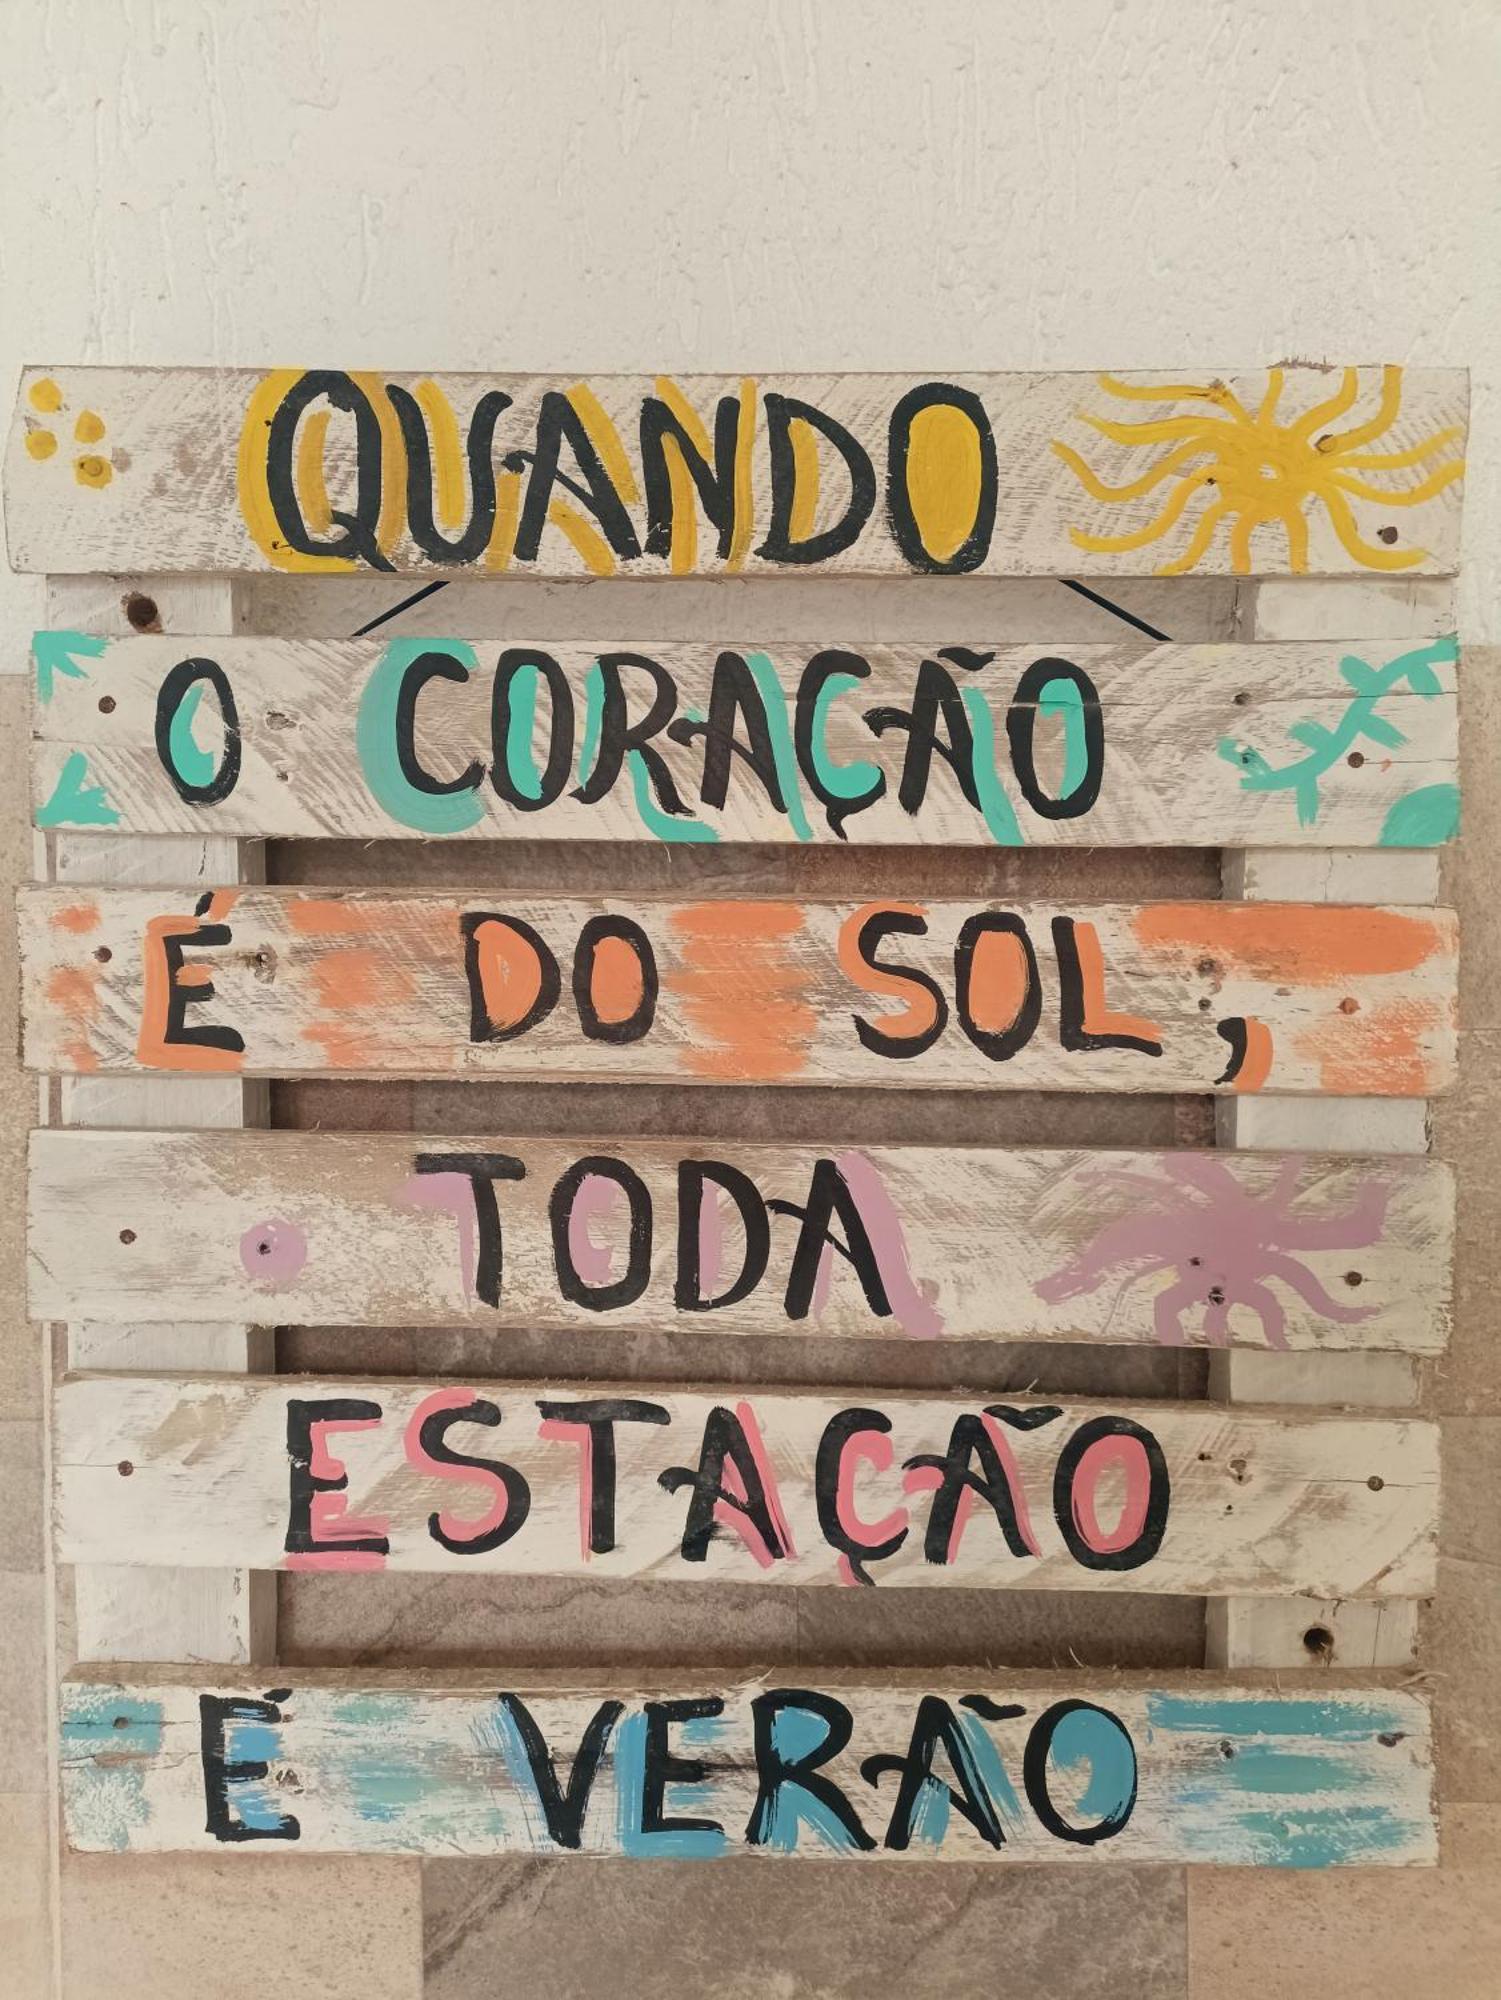 QUANDO
O CORAÇÃO
É DO SOL,
TODA
ESTAÇÃO
É VERÃO